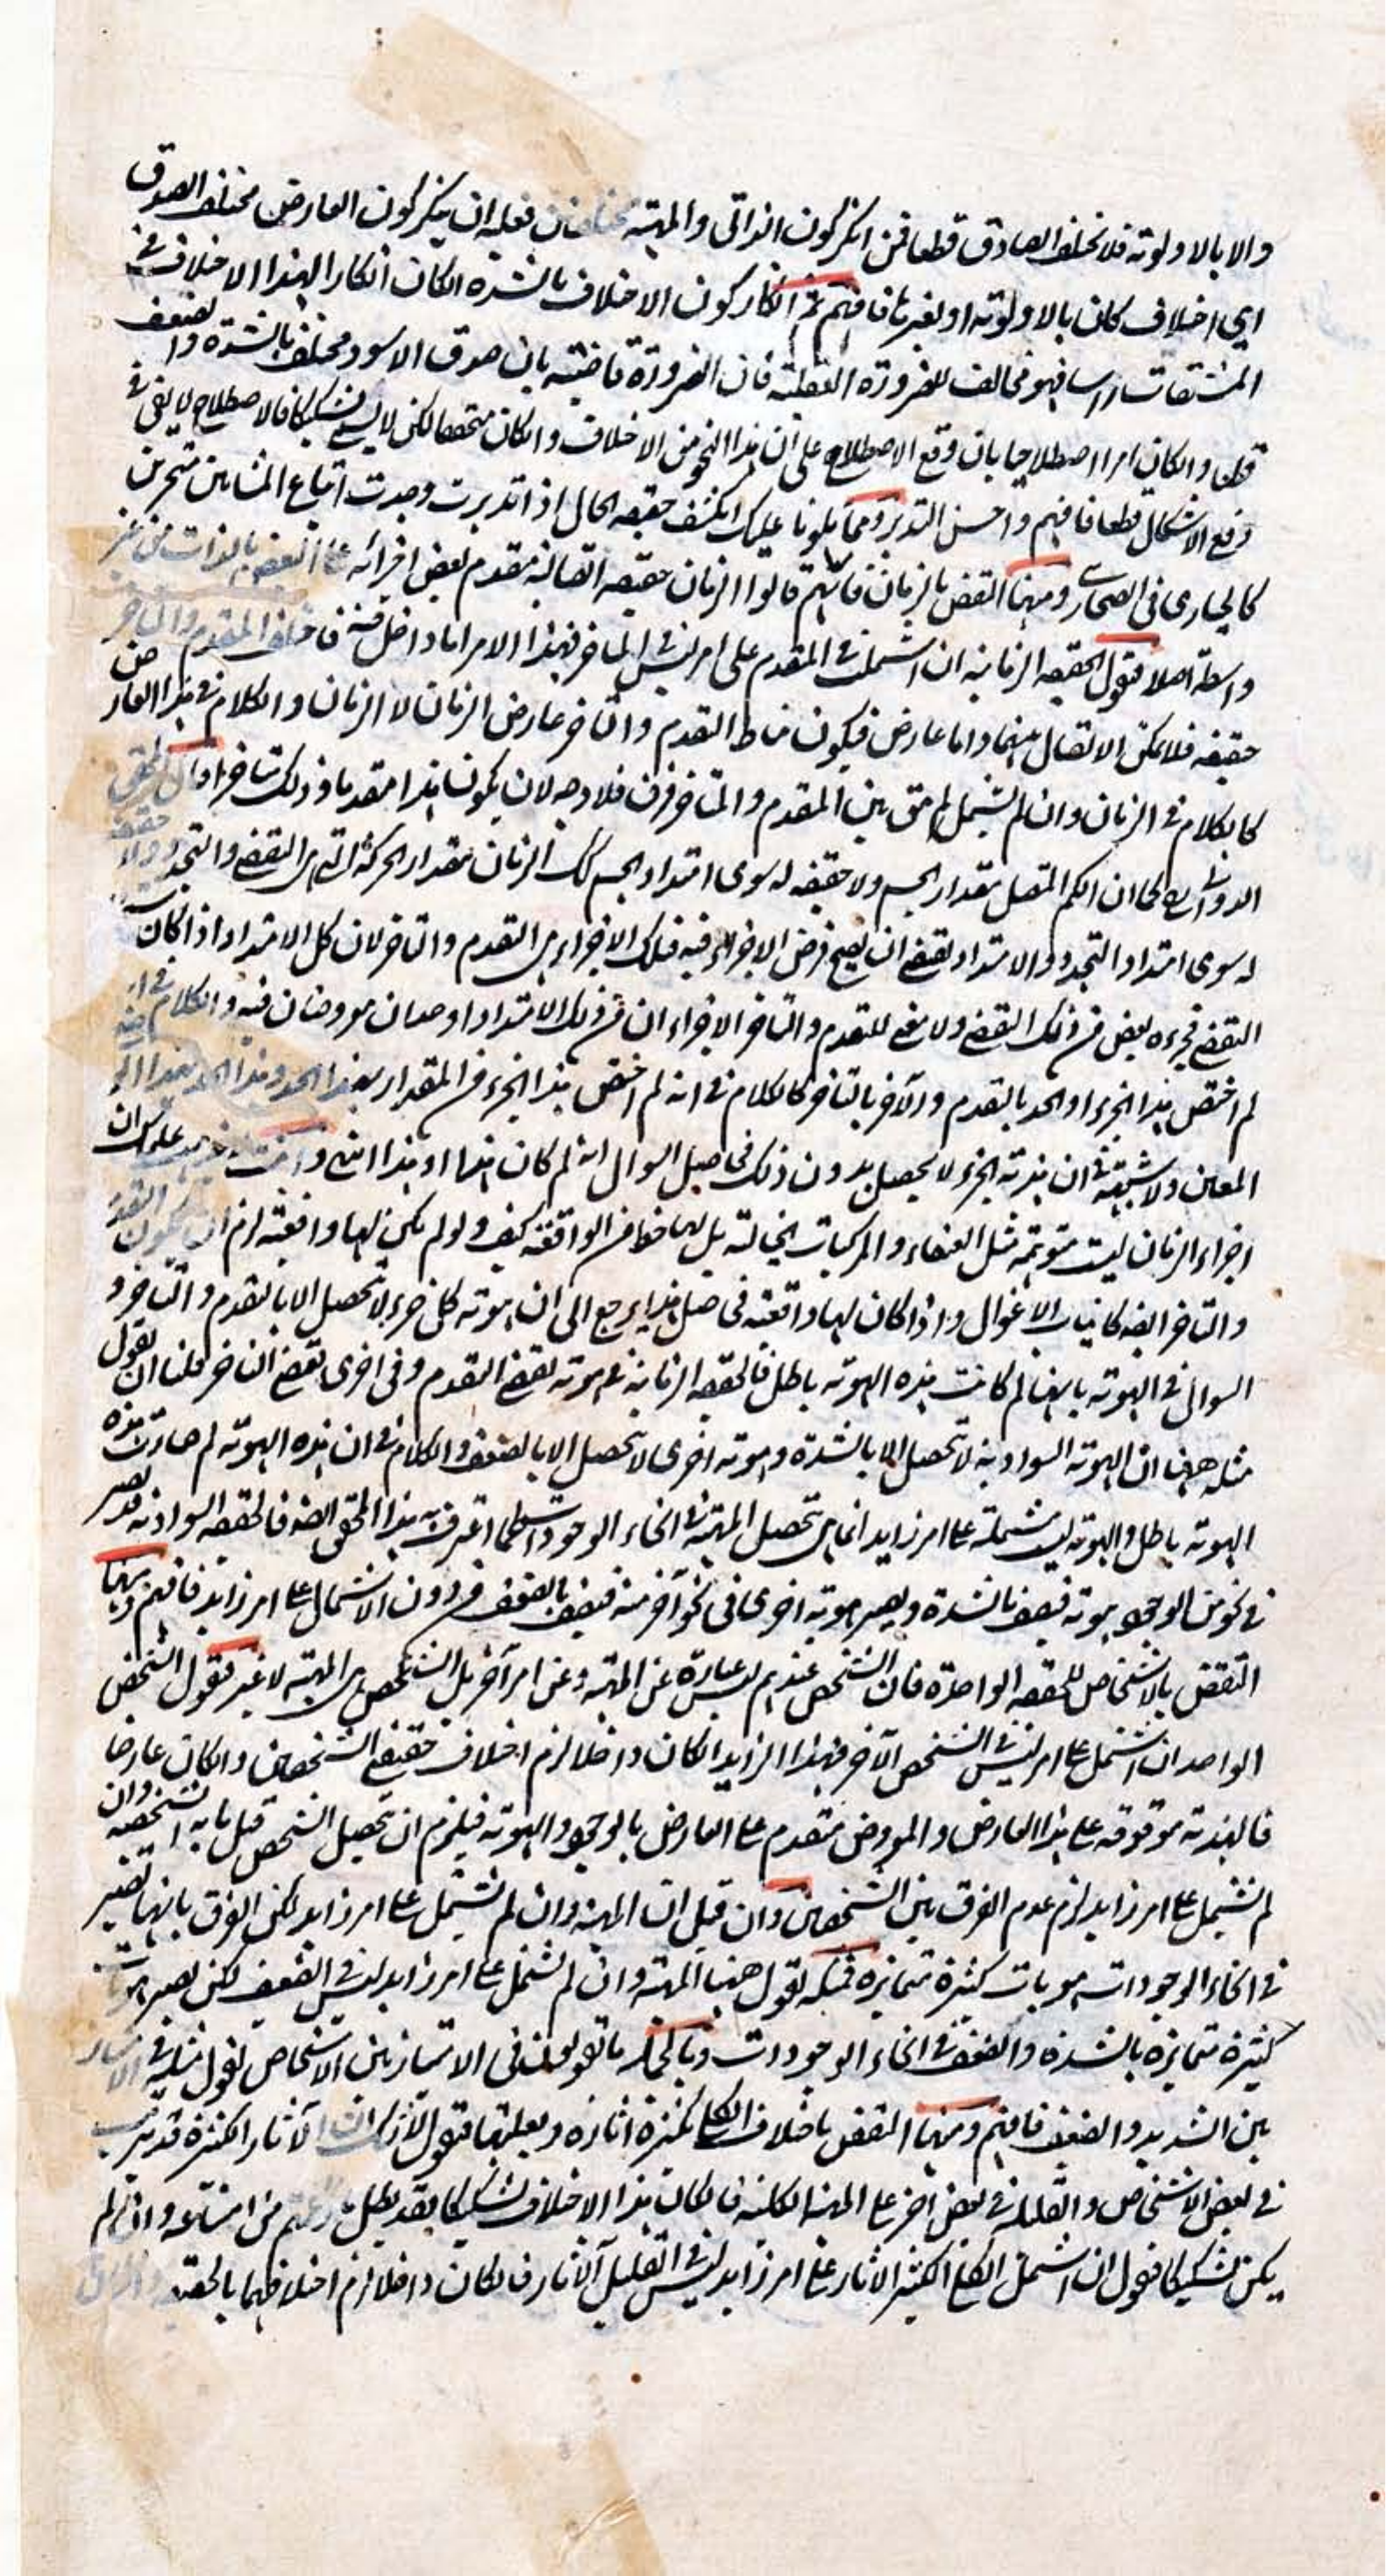 والا بالاولوته فلا تختلف الصادق قطعا فمن انكر كون الذاتي والمهية مختلفان فعليه ان ينكر كون العارض مختلف الصدق
اي اختلاف كان بالاولوته او بغيرها فافهم ثم انكار كون الاختلاف بالشدة انكان انكارا لهذا الاختلاف في
المشتقات راسا فهو مخالف للضرورة العقلية فان الضرورة قاضية بان صدق الاسود مختلف بالشدة والضعف
قطعا وانكان امرا اصطلاحيا بان وقع الاصطلاح على ان هذا النحو من الاختلاف وانكان متحققا لكن لا يسمى تشكيكا فالاصطلاح لا يغني في
دفع الاشكال قطعا فافهم واحسن التدبر ومما تلونا عليك انكشف حقيقة الحال اذا تدبرت وجدت اتباع المشائين متحرين
كالحيارى في الصحارى ومنها النقض بالزمان فانهم قالوا الزمان حقيقة اتصالية متقدم بعض اجزائه على البعض بالذات من غير
واسطة اصلا فنقول الحقيقة الزمانية ان اشتملت في المقدم على امر ليس في المتاخر فهذا الامر اما داخل فيه فاختلف المقدم والتاخر
حقيقة فلا يمكن الاتصال بينهما واما عارض فيكون مناط التقدم والتاخر عارض الزمان لا الزمان والكلام في هذا العارض
كالكلام في الزمان وان لم يشتمل لم يبق بين المقدم والمتاخر فرق فلا وجه لان يكون هذا متقدما وذلك متاخرا وقال المحقق
الدواني كما ان الكم المتصل مقدار الجسم ولا حقيقة له سوى امتداد الجسم كك الزمان مقدار الحركة التي هي التقضي والتجدد ولا حقيقة
له سوى امتداد التجدد والامتداد يقتضي ان يصح فرض الاجزاء فيه فتلك الاجزاء هي التقدم والتاخر لان كل الامتداد اذا كان
التقضي فجزءه بعض من ذلك التقضي ولا معنى للتقدم والتاخر الا جزاءان من ذلك الامتداد او حدان مفروضان فيه والكلام في انه
لم اختص هذا الجزء او الحد بالتقدم والآخر بالتاخر كالكلام في انه لم اختص هذا الجزء من المقدار بهذا الحد وهذا الحد بهذا الحد
المعين ولا شبهة في ان هذية الجزء لا يحصل بدون ذلك فحاصل السوال انه لم كان هذا هذا او هذا انتهى وانت خبير عليك ان
اجزاء الزمان ليست متوهمة مثل العنقاء والمركبات الخيالية بل لها حظ من الواقعية كيف ولو لم يكن لها واقعية لزم ان يكون التقدم
والتاخر ايضا كانياب الاغوال واذا كان لها واقعية فحاصل هذا يرجع الى ان هوية كل جزء لا تحصل الا بالتقدم والتاخر و
السوال في الهوية بانها لم كانت هذه الهوية باطل فالحقيقة الزمانية في هوية تقتضي التقدم وفي اخرى تقتضي التاخر فلنا ان نقول
مثله ههنا ان الهوية السوادية لا تحصل الا بالشدة وهوية اخرى لا تحصل الا بالضعف والكلام في ان هذه الهوية لم صارت هذه
الهوية باطل والهوية ليست مشتملة على امر زايد انما هي تحصل المهية في انحاء الوجودات كما اعترف به هذا المحقق ايضا فالحقيقة السوادية قد تصير
في نحو من الوجود هوية فيتصف بالشدة ويصير هوية اخرى في نحو آخر منه فيتصف بالضعف من دون الاشتمال على امر زايد فافهم ومنها
النقض بالاشخاص للحقيقة الواحدة فان الشخص عندهم ليس عبارة عن المهية وعن امر آخر بل الشخص هي المهية لا غير فنقول الشخص
الواحد ان اشتمل على امر ليس في الشخص الآخر فهذا الزايد انكان داخلا لزم اختلاف حقيقتي الشخصين وانكان عارضا
فالهذية موقوفة على هذا العارض والمعروض متقدم على العارض بالوجود والهوية فيلزم ان تحصل الشخص قبل ما به تشخصه وان
لم تشتمل على امر زايد لزم عدم الفرق بين الشخصين وان قيل ان المهية وان لم تشتمل على امر زايد لكن الفرق بانها تصير
في انحاء الوجودات هويات كثيرة متمايزة فمثله نقول ههنا المهية وان لم تشتمل على امر زايد ليس في الضعيف لكن يصير هويات
كثيرة متمايزة بالشدة والضعف في انحاء الوجودات وبالجملة ما تقولون في الامتياز بين الاشخاص نقول مثله في الامتياز
بين الشديد والضعيف فافهم ومنها النقض باختلاف الكلي بكثرة آثاره وبقلتها فنقول لا شك ان الآثار الكثيرة قد تترتب
في بعض الاشخاص والقليلة في بعض آخر على المهية الكلية فانكان هذا الاختلاف تشكيكا فقد بطل زعمهم من امتناعه وان لم
يكن تشكيكا فنقول ان اشتمل الكلي الكثير الآثار على امر زايد ليس في القليل الآثار فانكان داخلا لزم اختلافهما بالحقيقة